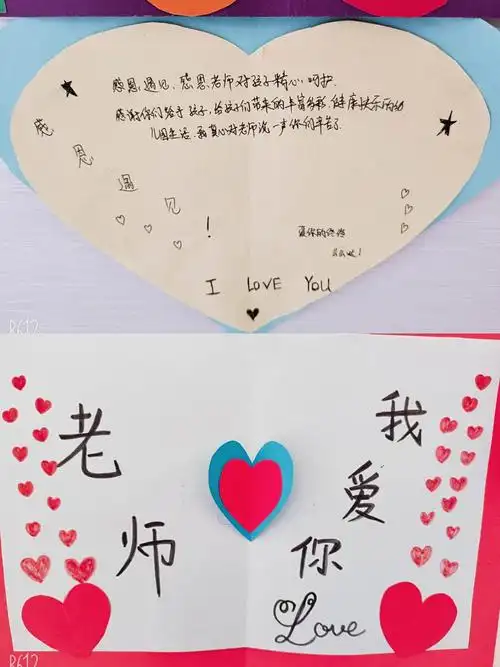 感恩遇见，感恩老师对孩子精心呵护.
感谢你们给予孩子，给孩子们带来的丰富多彩，健康快乐的幼
儿园生活，我真心对老师说一声你们辛苦了
感恩遇见！
爱你的
I LOVE YOU
R612
老师
我爱你
Love
R612